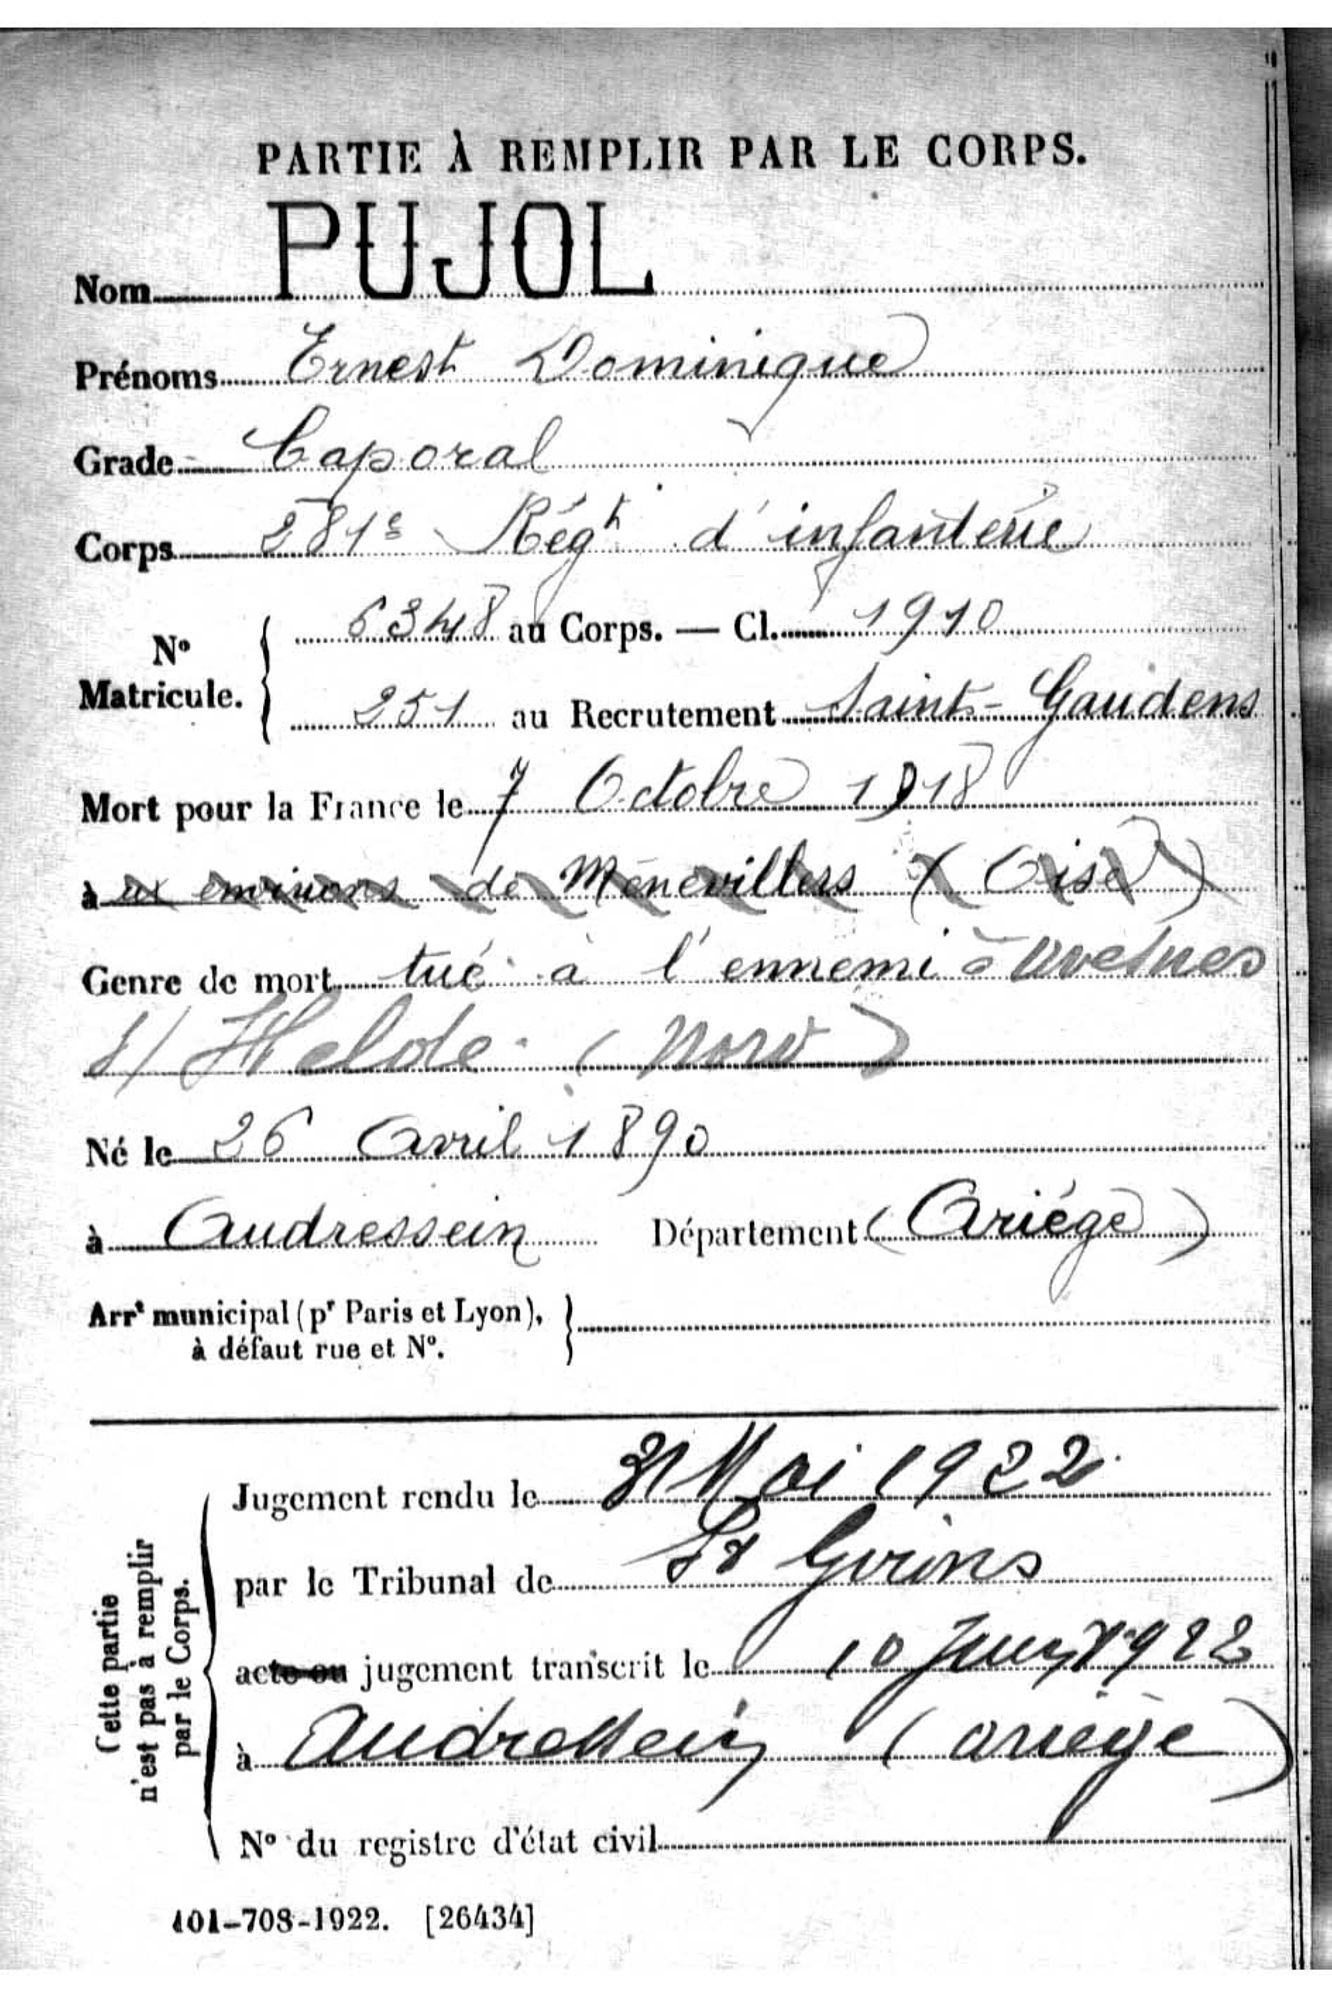 PARTIE À REMPLIR PAR LE CORPS.
Nom PUJOL
Prénoms Ernest Dominique
Grade Caporal
Corps 281e Régt d'infanterie
No Matricule. { 6348 au Corps. — Cl. 1910
251 au Recrutement Saint-Gaudens
Mort pour la France le 7 Octobre 1918
à ux environs de Ménévillers (Oise)
Genre de mort tué à l'ennemi à Avesnes
s/ Helde (Nord)
Né le 26 Avril 1890
à Audressein Département (Ariége)
Arrt municipal (pr Paris et Lyon), }
à défaut rue et No.
Cette partie
n'est pas à remplir
par le Corps.
Jugement rendu le 31 Mai 1922
par le Tribunal de St Girons
acte ou jugement transcrit le 10 Juin 1922
à Audressein (Ariège)
No du registre d'état civil
101-708-1922. [26434]